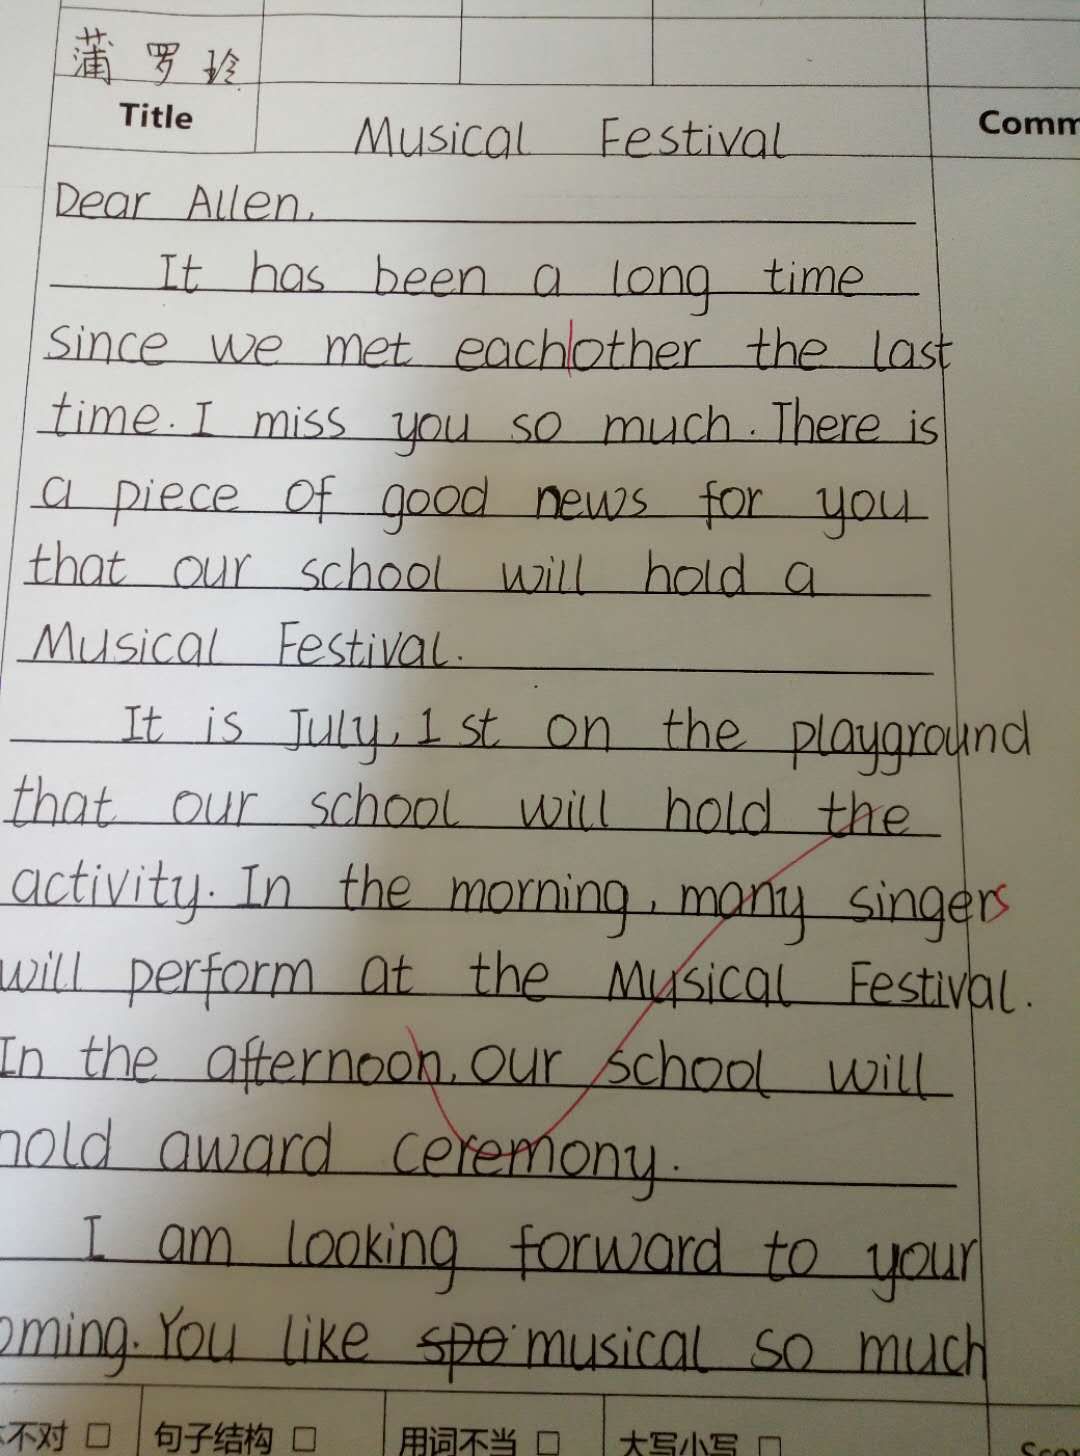 蒲罗珍
Title Musical Festival Comm
Dear Allen,
It has been a long time
since we met eachother the last
time. I miss you so much. There is
a piece of good news for you
that our school will hold a
Musical Festival.
It is July, 1st on the playground
that our school will hold the
activity. In the morning, many singers
will perform at the Musical Festival.
In the afternoon, our school will
hold award ceremony.
I am looking forward to your
oming. You like spo musical so much
不对 □ 句子结构 □ 用词不当 □ 大写小写 □ Sco